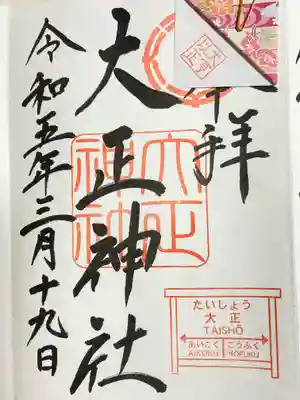 拝
大正神社
令和五年三月十九日
大正
神社
たいしょう
大正
TAISHŌ
あいこく
こうふく
AIKOKU
KOFUKU